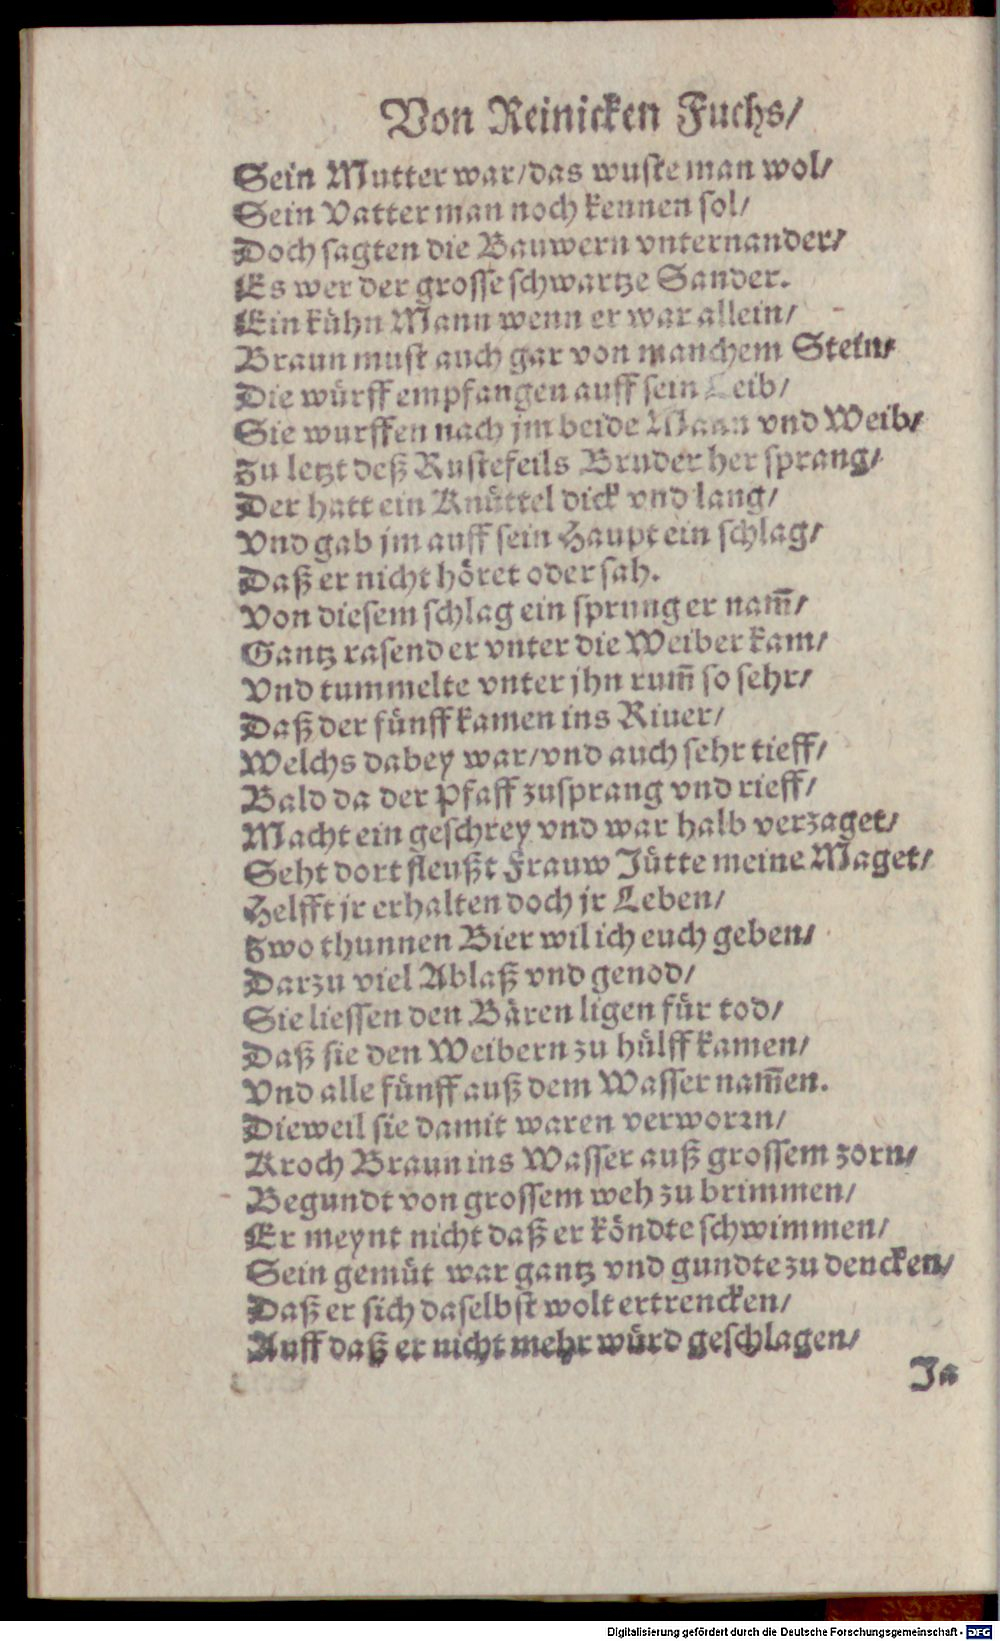 Von Reinicken Fuchs/
Sein Mutter war/das wuste man wol/
Sein Vatter man noch kennen sol/
Doch sagten die Bauwern vnternander/
Es wer der grosse schwartze Sander.
Ein kühn Mann wenn er war allein/
Braun must auch gar von manchem Stein/
Die würff empfangen auff sein Leib/
Sie wurffen nach jm beide Mann vnd Weib/
Zu letzt deß Rustefeils Bruder her sprang/
Der hatt ein Knüttel dick vnd lang/
Vnd gab jm auff sein Haupt ein schlag/
Daß er nicht höret oder sah.
Von diesem schlag ein sprung er nam̃/
Gantz rasend er vnter die Weiber kam/
Vnd tummelte vnter jhn rum̃ so sehr/
Daß der fünff kamen ins Riuer/
Welchs dabey war/vnd auch sehr tieff/
Bald da der Pfaff zusprang vnd rieff/
Macht ein geschrey vnd war halb verzaget/
Seht dort fleußt Frauw Jütte meine Maget/
Helfft jr erhalten doch jr Leben/
Zwo thunnen Bier wil ich euch geben/
Darzu viel Ablaß vnd genod/
Sie liessen den Bären ligen für tod/
Daß sie den Weibern zu hülff kamen/
Vnd alle fünff auß dem Wasser nam̃en.
Dieweil sie damit waren verworꝛn/
Kroch Braun ins Wasser auß grossem zorn/
Begundt von grossem weh zu brimmen/
Er meynt nicht daß er köndte schwimmen/
Sein gemüt war gantz vnd gundte zu dencken/
Daß er sich daselbst wolt ertrencken/
Auff daß er nicht mehr würd geschlagen/
Ja
Digitalisierung gefördert durch die Deutsche Forschungsgemeinschaft - DFG